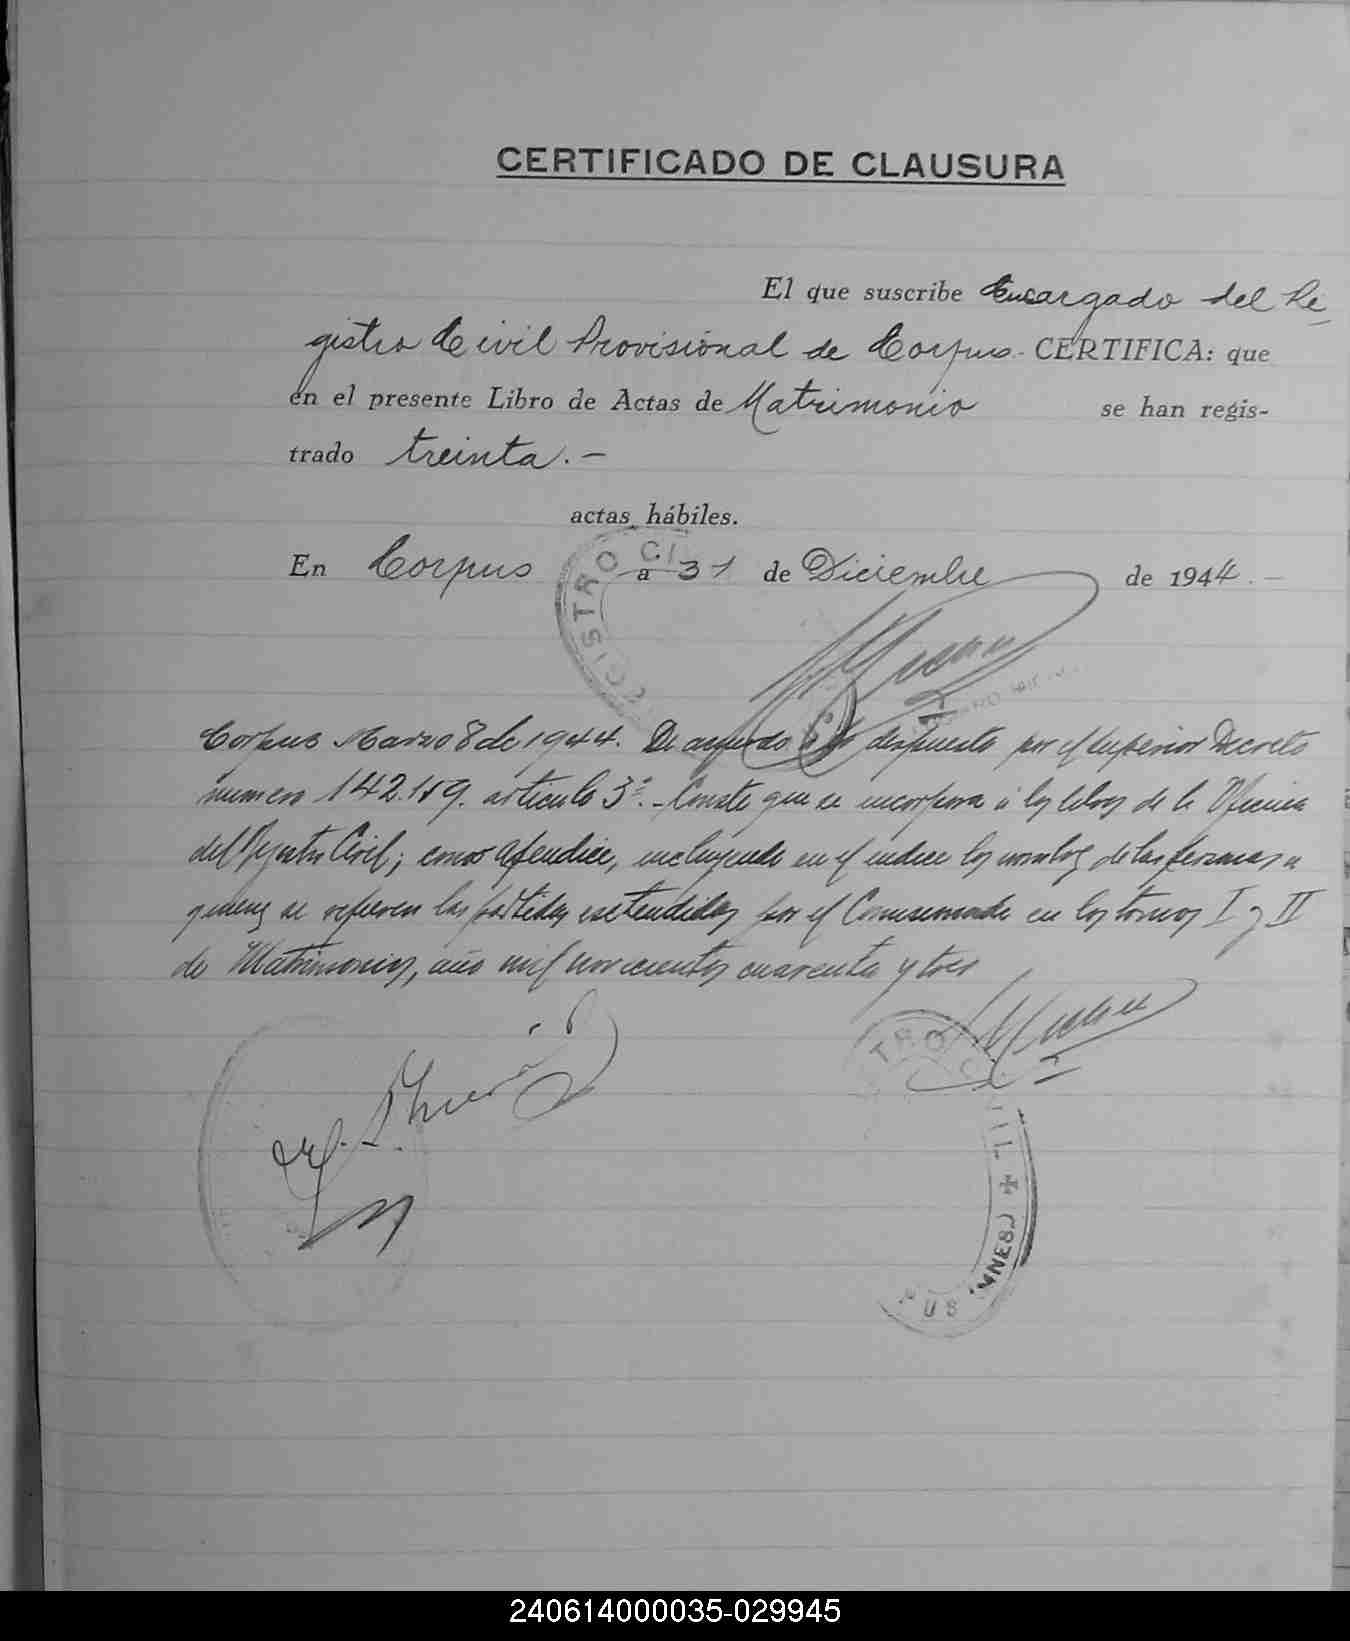 CERTIFICADO DE CLAUSURA
El que suscribe Encargado del Re-
gistro Civil Provisional de Corpus.- CERTIFICA: que
en el presente Libro de Actas de Matrimonio se han regis-
trado treinta.-
actas hábiles.
En Corpus a 31 de Diciembre de 1944.-
REGISTRO CI
Corpus Marzo 8 de 1944. De acuerdo a lo dispuesto por el superior Decreto
numero 142.159. articulo 3º.- Conste que se incorpora a los libros de la Oficina
del Registro Civil; como apendice, incluyendo en el indice los nombres de las personas a
quienes se refieren las partidas extendidas por el Comisionado en los tomos I y II
de Matrimonios, año mil novecientos cuarenta y tres
TRO CIVIL
240614000035-029945